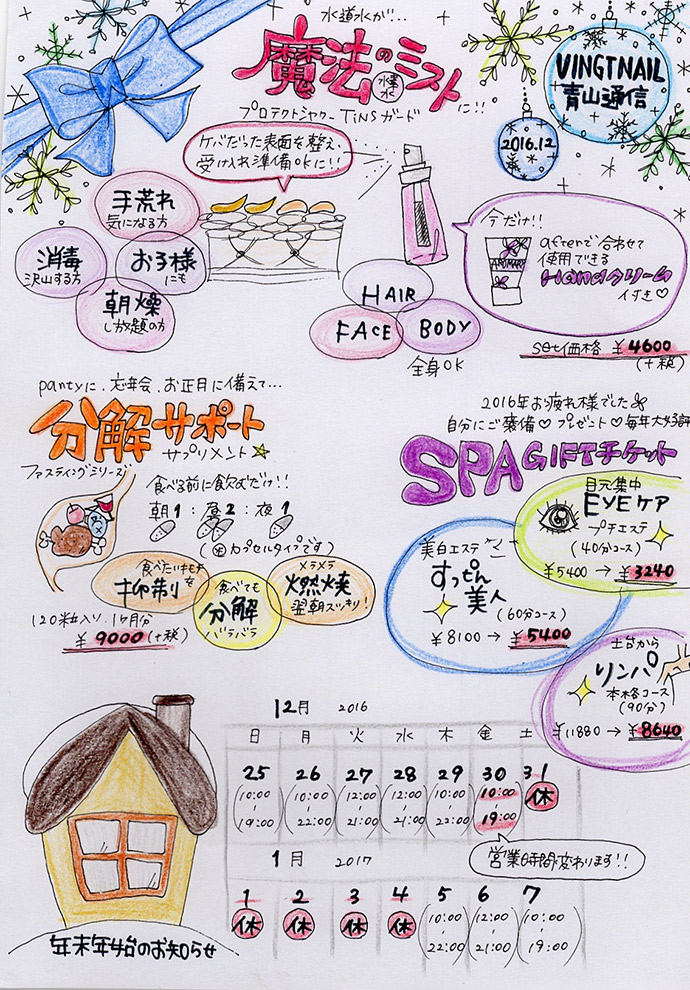 水道水が…
魔法のミスト
水素水
に!!
プロテクトシャワーTiNSガード
VINGTNAIL
青山通信
2016.12
ケバだった表面を整え、
受け入れ準備OKに!!
手荒れ
気になる方
消毒
沢山する方
お子様
にも
朝燥
し放題の方
HAIR
FACE
BODY
全身OK
今だけ!!
afterで合わせて
使用できる
Handクリーム
付き♡
set価格 ¥4600
(+税)
partyに、忘年会、お正月に備えて…
分解サポート
サプリメント☆
ファスティングシリーズ
食べる前に飲むだけ!!
朝1:昼2:夜1
(※カプセルタイプです)
食べたいキモチを
抑制
食べても
分解
バラバラ
メラメラ
燃焼
翌朝スッキリ!
120粒入り、1ヶ月分
¥9000(+税)
2016年お疲れ様でした
自分にご褒備♡プレゼント♡毎年大好評
SPAGIFTチケット
目元集中
EYEケア
プチエステ
(40分コース)
¥5400→¥3240
美白エステ
すっぴん
美人
(60分コース)
¥8100→¥5400
土台から
リンパ
本格コース
(90分)
¥11880→¥8640
12月 2016
日 月 火 水 木 金 土
25 26 27 28 29 30 31
(10:00-19:00) (10:00-22:00) (12:00-21:00) (12:00-21:00) (10:00-22:00) (10:00-19:00) 休
営業時間変わります!!
1月 2017
1 2 3 4 5 6 7
休 休 休 休 (10:00-22:00) (12:00-21:00) (10:00-19:00)
年末年始のお知らせ